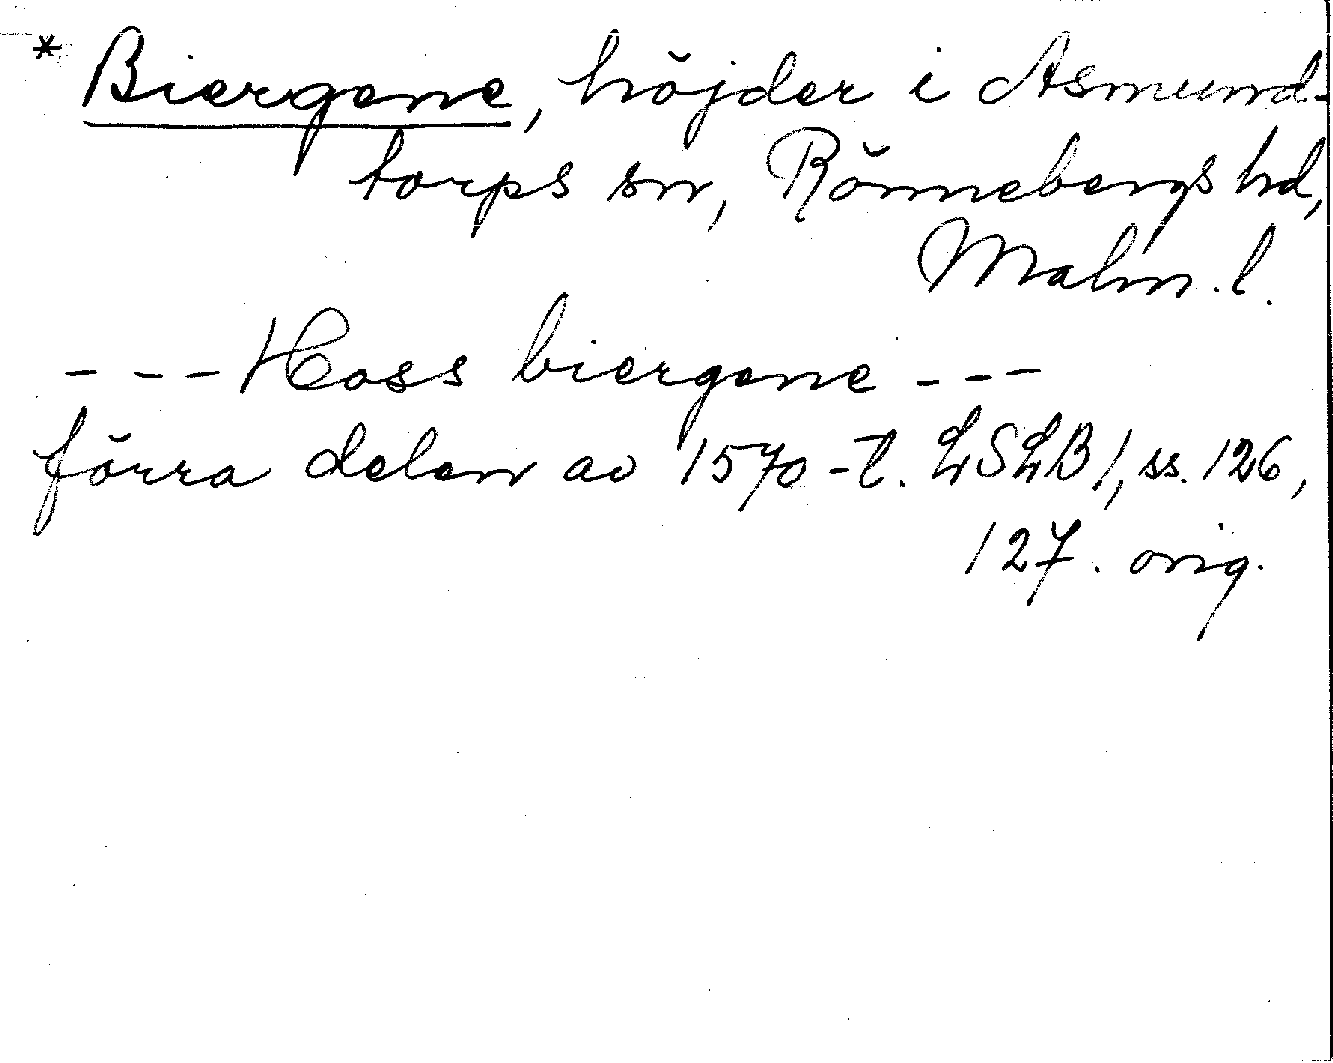 * Biergene, höjder i Asmund-
torps sn, Rönnebergs hd,
Malm. l.
- - - Hoss biergene - - -
förra delen av 1570-t. LSLB 1, ss. 126,
127. orig.